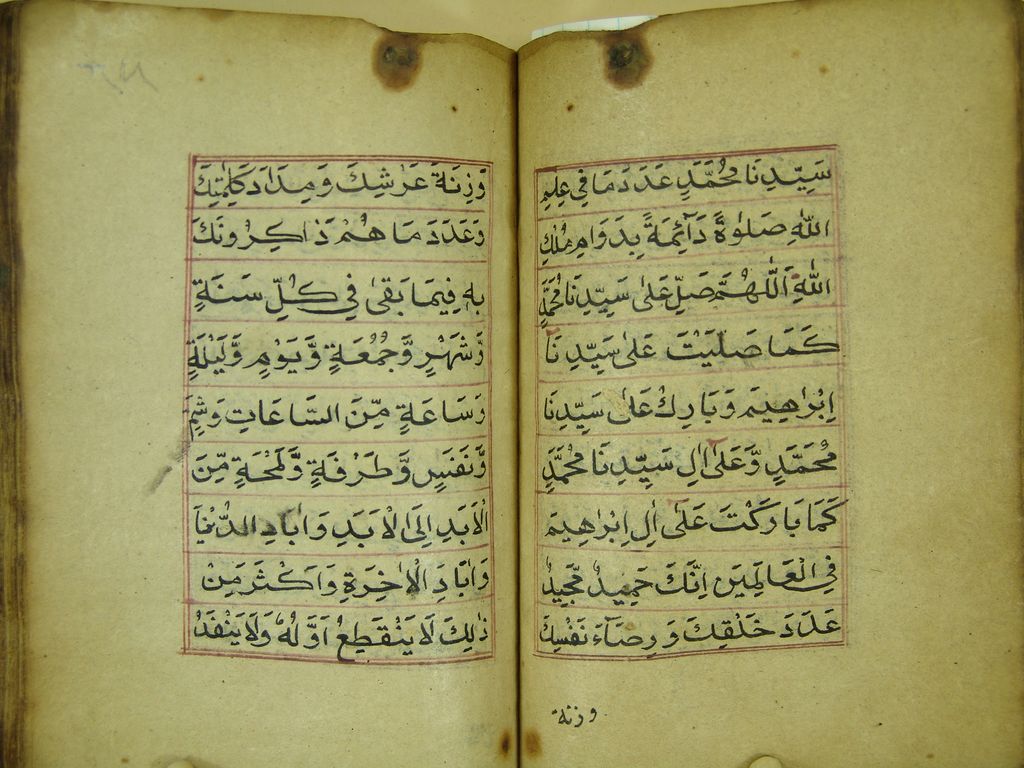 سَيِّدِنَا مُحَمَّدٍ عَدَدَ مَا فِي عِلْمِ
اللّٰهِ صَلٰوةً دَآئِمَةً بِدَوَامِ مُلْكِ
اللّٰهِ اَللّٰهُمَّ صَلِّ عَلٰى سَيِّدِنَا مُحَمَّدٍ
كَمَا صَلَّيْتَ عَلٰى سَيِّدِنَا
اِبْرٰهِيمَ وَبَارِكْ عَلٰى سَيِّدِنَا
مُحَمَّدٍ وَّعَلٰى اٰلِ سَيِّدِنَا مُحَمَّدٍ
كَمَا بَارَكْتَ عَلٰى اٰلِ اِبْرٰهِيمَ
فِي الْعَالَمِينَ اِنَّكَ حَمِيدٌ مَّجِيدٌ
عَدَدَ خَلْقِكَ وَرِضَآءَ نَفْسِكَ
وزنة
وَزِنَةَ عَرْشِكَ وَمِدَادَ كَلِمٰتِكَ
وَعَدَدَ مَا هُمْ ذَاكِرُونَكَ
بِهٖ فِيمَا بَقٰى فِي كُلِّ سَنَةٍ
وَّشَهْرٍ وَّجُمُعَةٍ وَّيَوْمٍ وَّلَيْلَةٍ
وَسَاعَةٍ مِّنَ السَّاعَاتِ وَشَمٍّ
وَّنَفَسٍ وَّطَرْفَةٍ وَّلَمْحَةٍ مِّنَ
الْاَبَدِ اِلَى الْاَبَدِ وَاٰبَادِ الدُّنْيَا
وَاٰبَادِ الْاٰخِرَةِ وَاَكْثَرَ مِنْ
ذٰلِكَ لَا يَنْقَطِعُ اَوَّلُهٗ وَلَا يَنْفَدُ